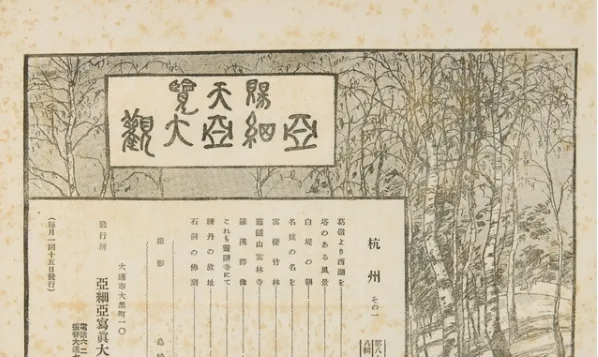 賜天覽
亞細亞大觀
杭州 その一
葛嶺より西湖を
塔のある風景
白堤の朝
名妓の名を
雲棲竹林
靈隱山雲林寺
羅漢群像
これも靈隱寺にて
煉丹の故址
石洞の佛廟
撮影 島
大連市大黑町一〇
發行所 亞細亞寫眞大
電話六二
振替大連
(每月一回十五日發行)